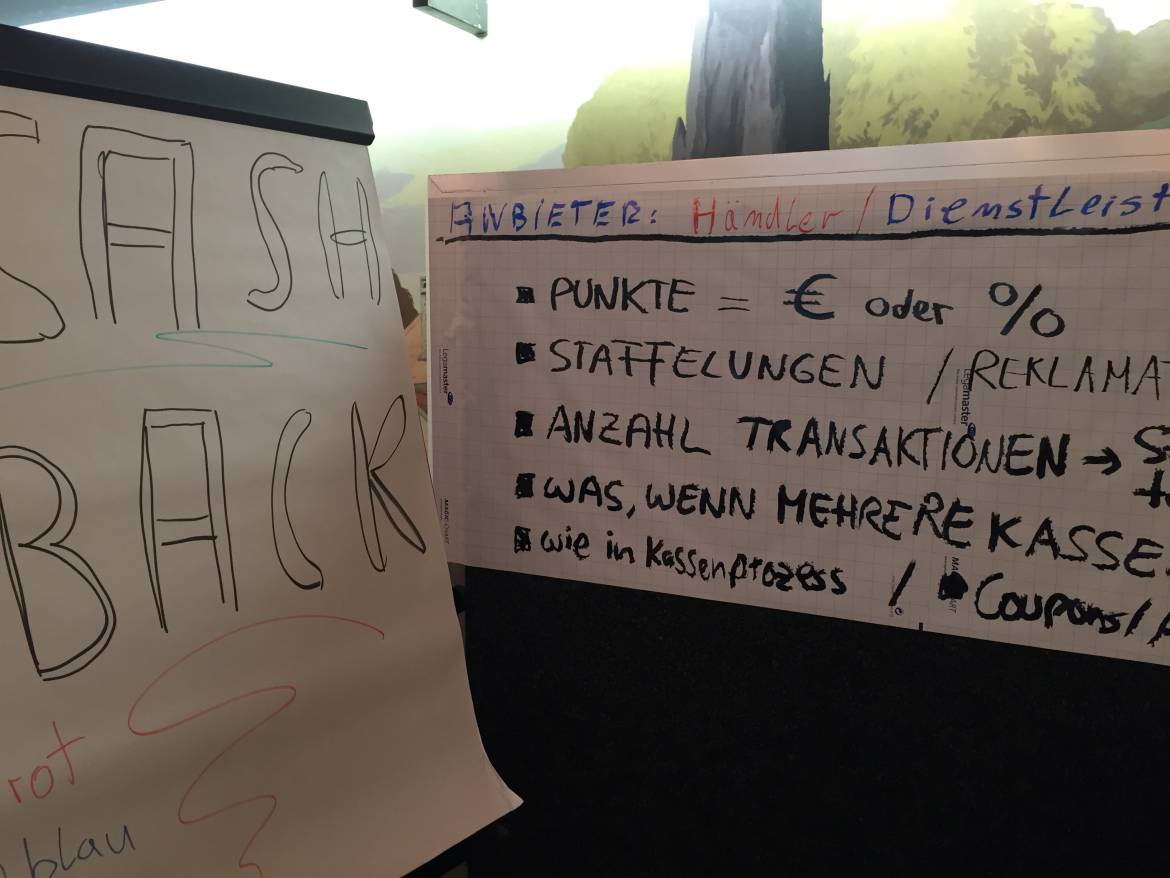 CASH
BACK
rot
blau
ANBIETER: Händler / Dienstleist
PUNKTE = € oder %
STAFFELUNGEN / REKLAMAT
ANZAHL TRANSAKTIONEN →
WAS, WENN MEHRERE KASSE
wie in Kassenprozess / Coupons/
Legamaster
Legamaster